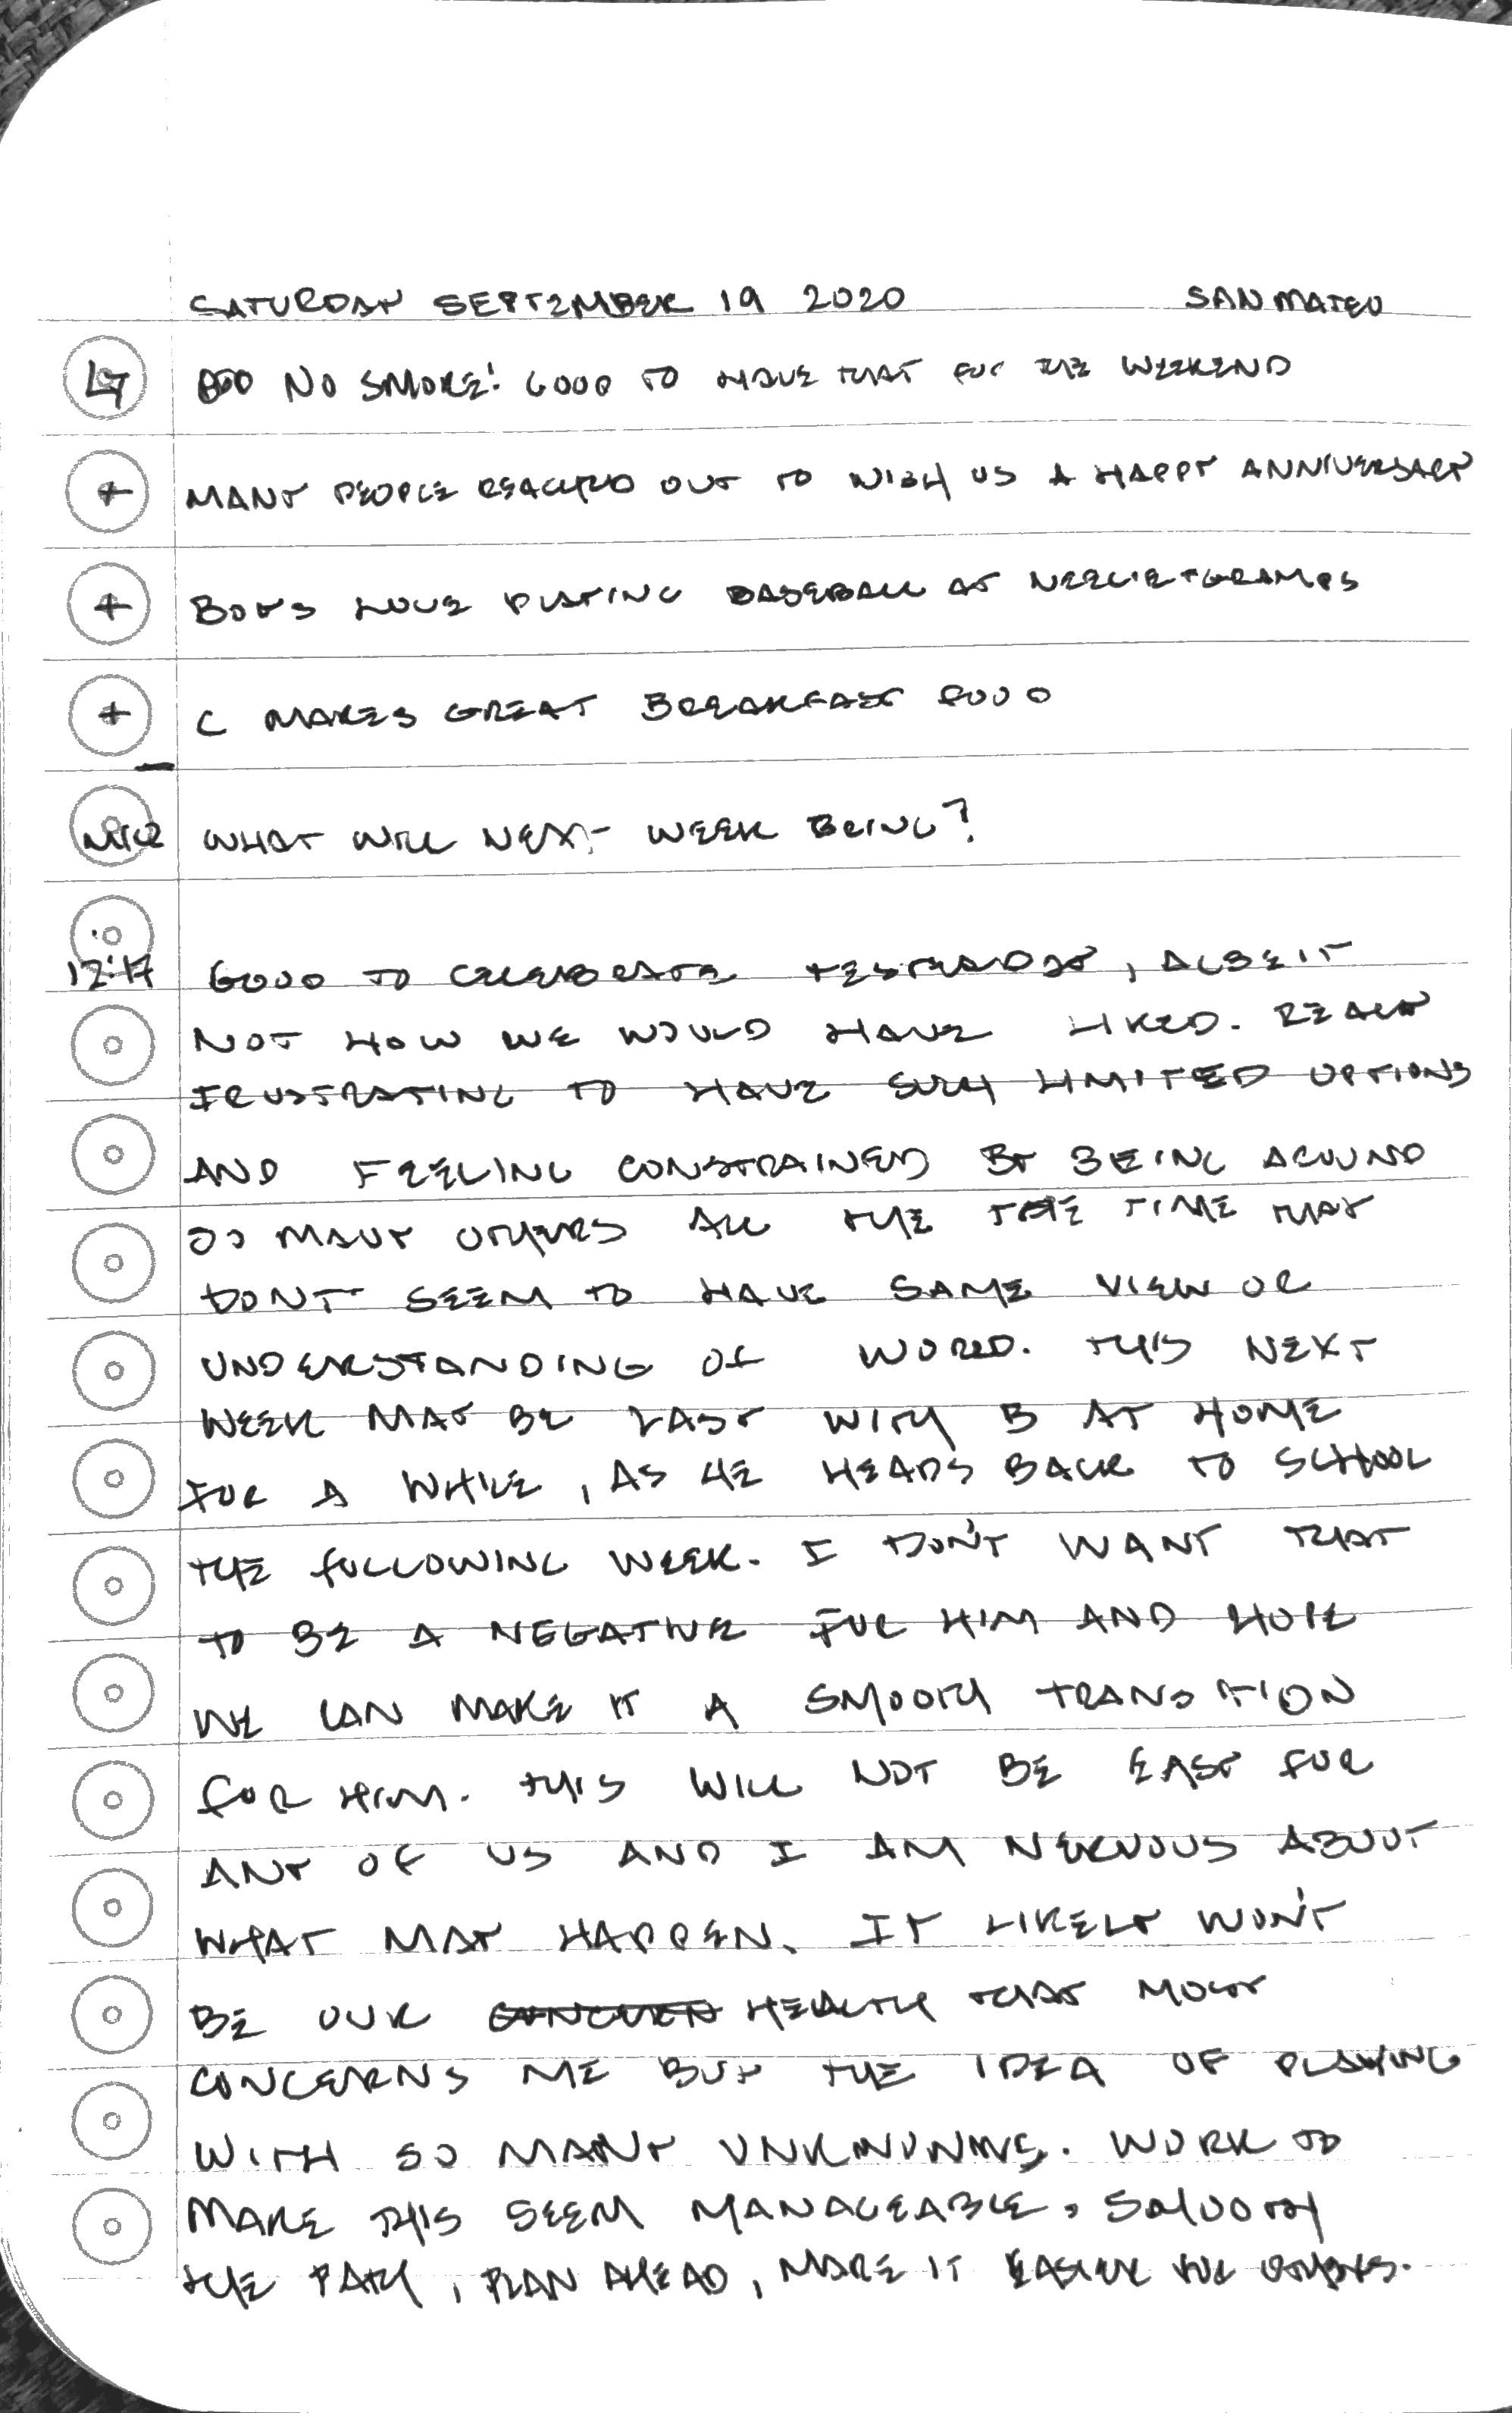 SATURDAY SEPTEMBER 19 2020 SAN MATEO
NO SMOKE! GOOD TO HAVE THAT FOR THE WEEKEND
+ MANY PEOPLE REACHED OUT TO WISH US A HAPPY ANNIVERSARY
+ BOYS LOVE PLAYING BASEBALL AT + GRAMPS
+ C MAKES GREAT BREAKFAST FOOD
WHAT WILL NEXT WEEK BRING?
12:17 GOOD TO CELEBRATE YESTERDAY, ALBEIT
NOT HOW WE WOULD HAVE LIKED. REALLY
FRUSTRATING TO HAVE SUCH LIMITED OPTIONS
AND FEELING CONSTRAINED BY BEING AROUND
SO MANY OTHERS ALL THE THE TIME THAT
DON'T SEEM TO HAVE SAME VIEW OR
UNDERSTANDING OF WORLD. THIS NEXT
WEEK MAY BE LAST WITH B AT HOME
FOR A WHILE, AS HE HEADS BACK TO SCHOOL
THE FOLLOWING WEEK. I DON'T WANT THAT
TO BE A NEGATIVE FOR HIM AND HOPE
WE CAN MAKE IT A SMOOTH TRANSITION
FOR HIM. THIS WILL NOT BE EASY FOR
ANY OF US AND I AM NERVOUS ABOUT
WHAT MAY HAPPEN. IT LIKELY WON'T
BE OUR HEALTH THAT MOST
CONCERNS ME BUT THE IDEA OF PLANNING
WITH SO MANY UNKNOWNS. WORK TO
MAKE THIS SEEM MANAGEABLE.
THE PATH, PLAN AHEAD, MAKE IT EASIER FOR OTHERS.